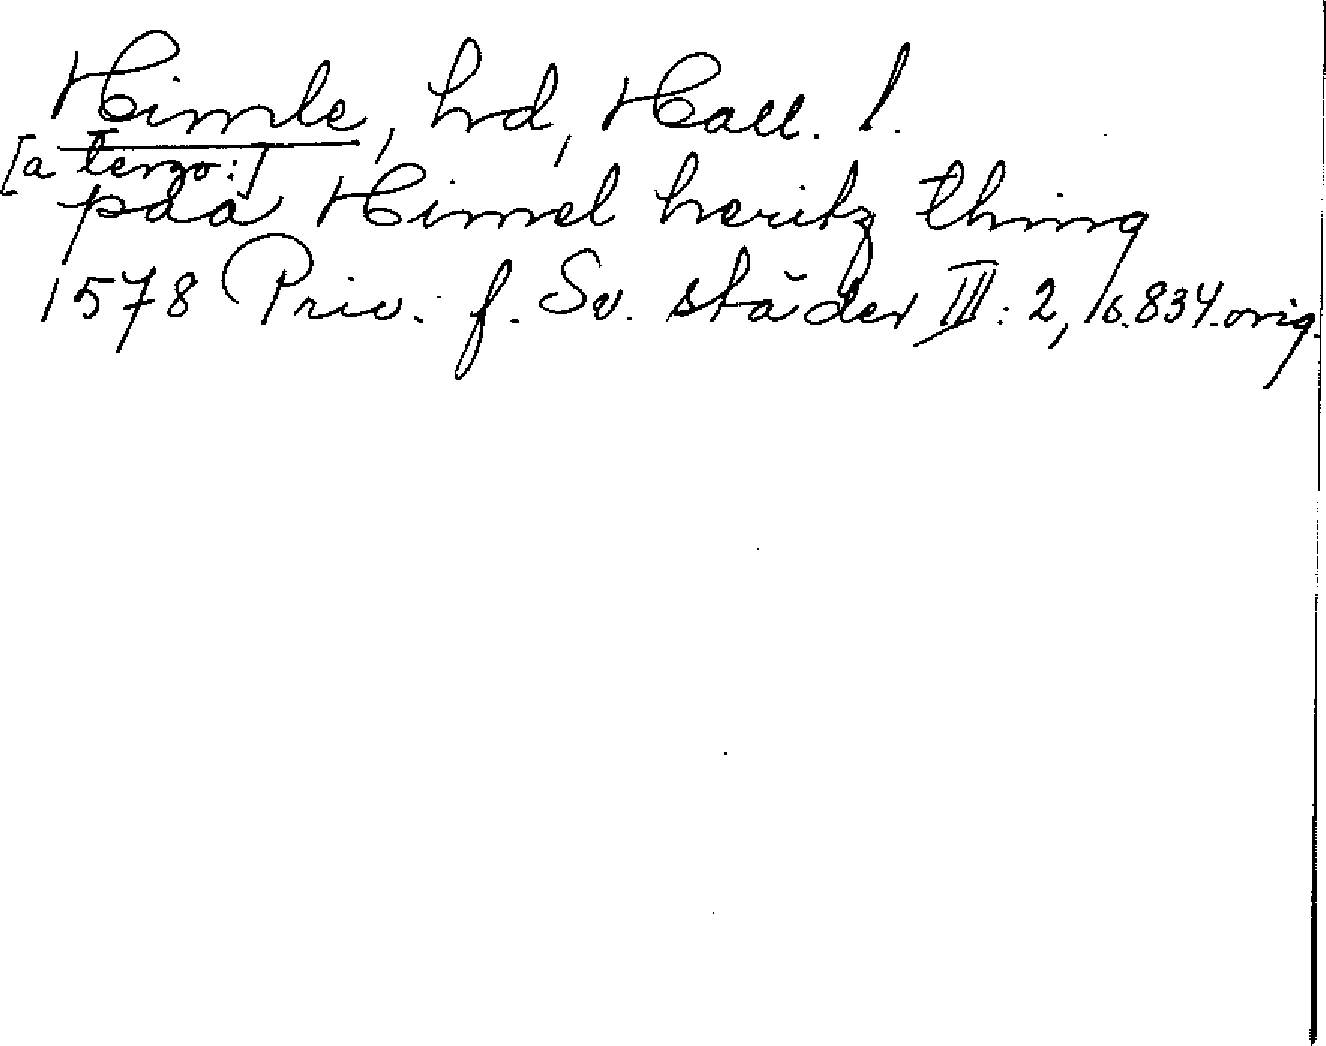 Himle, hrd, Hall. l.
[a tergo:]
paa Himel heritz thing
1578 Priv. f. Sv. städer III: 2, s. 834. orig.